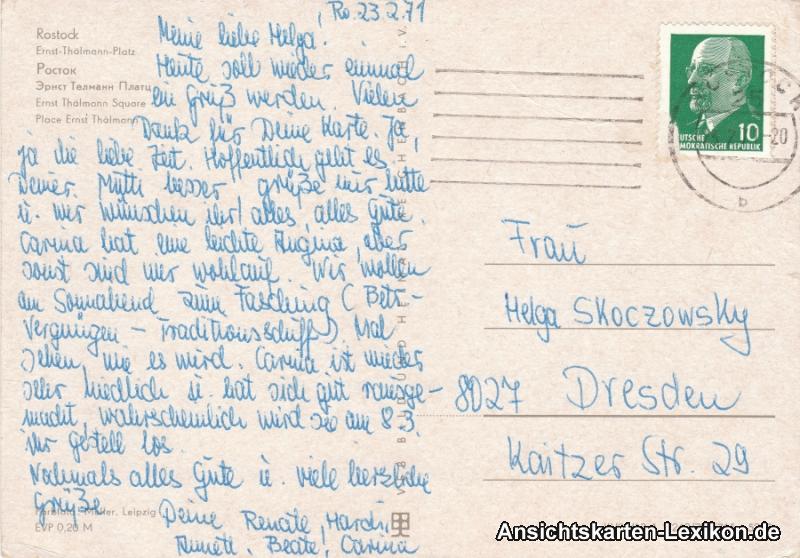 Rostock
Ernst-Thälmann-Platz
Росток
Эрнст Телманн Платц
Ernst Thälmann Square
Place Ernst Thälmann
Ro. 23.2.71
Meine liebe Helga!
Heute soll wieder einmal
ein Gruß werden. Vielen
Dank für Deine Karte. Ja,
ja die liebe Zeit. Hoffentlich geht es
Deiner Mutti besser, grüße mir bitte
u. wir wünschen ihr alles alles Gute.
Carina hat eine leichte Angina, aber
sonst sind wir wohlauf. Wir wollen
am Sonnabend zum Fasching (Betr.-
Vergnügen – Traditionsschiff) Mal
sehen, wie es wird. Carina ist wieder
sehr niedlich u. hat sich gut rausge-
macht, wahrscheinlich wird sie am 8.3.
ihr Gestell los.
Nochmals alles Gute u. viele herzliche
Grüße
Deine Renate, Hardi,
Annett, Beate, Carina
Müller, Leipzig
EVP 0,20 M
VEB BILD UND HEIMAT REICHENBACH I.V.
10
DEUTSCHE
DEMOKRATISCHE REPUBLIK
-20
b
Frau
Helga Skoczowsky
8027 Dresden
Kaitzer Str. 29
Ansichtskarten-Lexikon.de